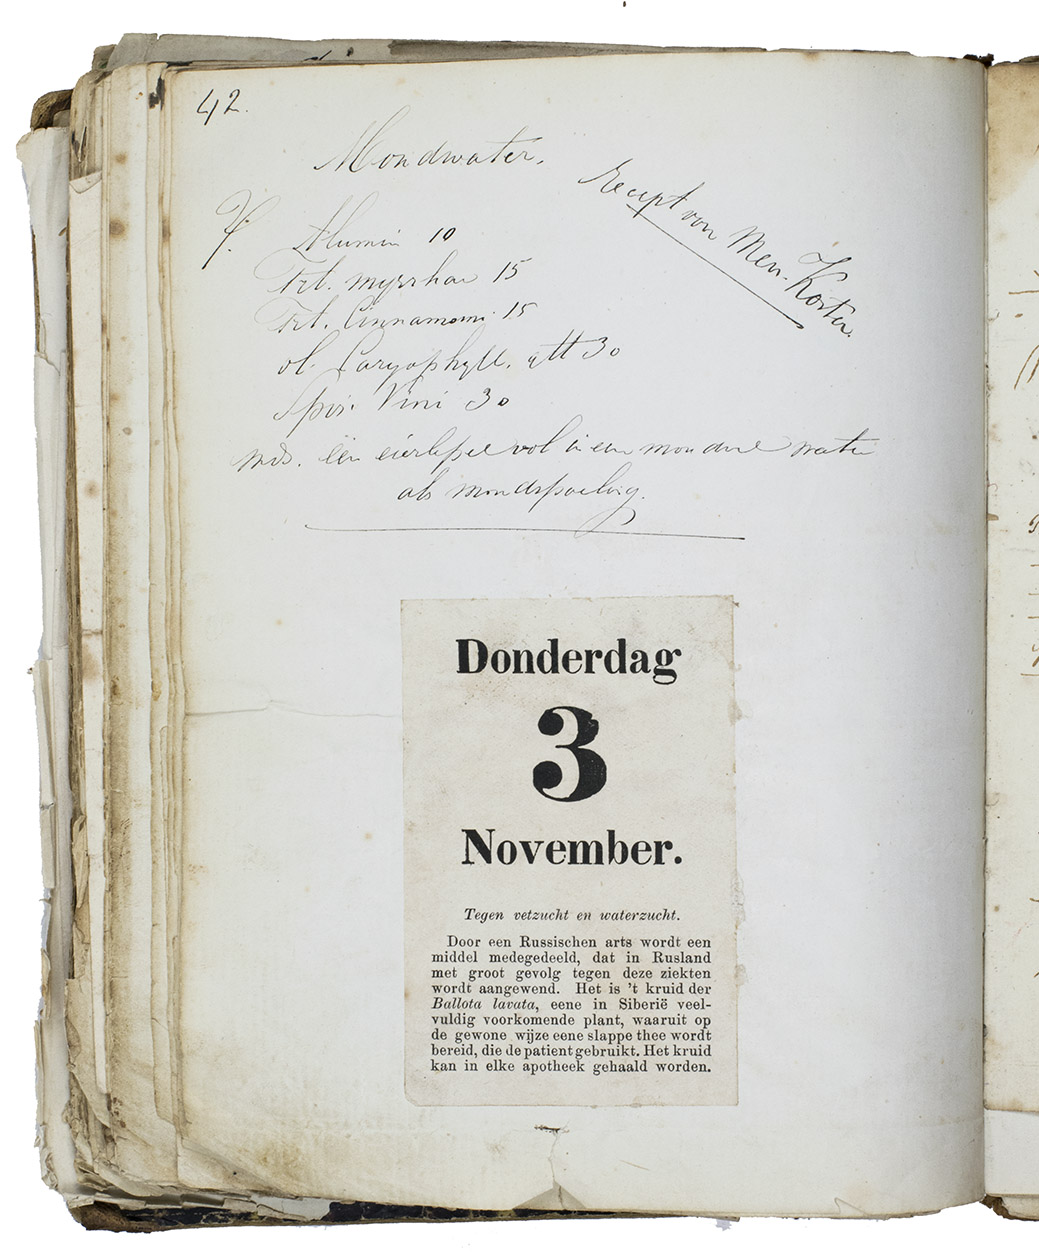 42.
Mondwater.
Recept von Mev. Koster.
Alumin 10
Trt. myrrhae 15
Trt. Cinnamomi 15
ol. Caryophyll. gtt 30
Spir. Vini 30
mds. één eierlepel vol in een mondvol water
als mondspoeling.
Donderdag
3
November.
Tegen vetzucht en waterzucht.
Door een Russischen arts wordt een
middel medegedeeld, dat in Rusland
met groot gevolg tegen deze ziekten
wordt aangewend. Het is 't kruid der
Ballota lavata, eene in Siberië veel-
vuldig voorkomende plant, waaruit op
de gewone wijze eene slappe thee wordt
bereid, die de patient gebruikt. Het kruid
kan in elke apotheek gehaald worden.